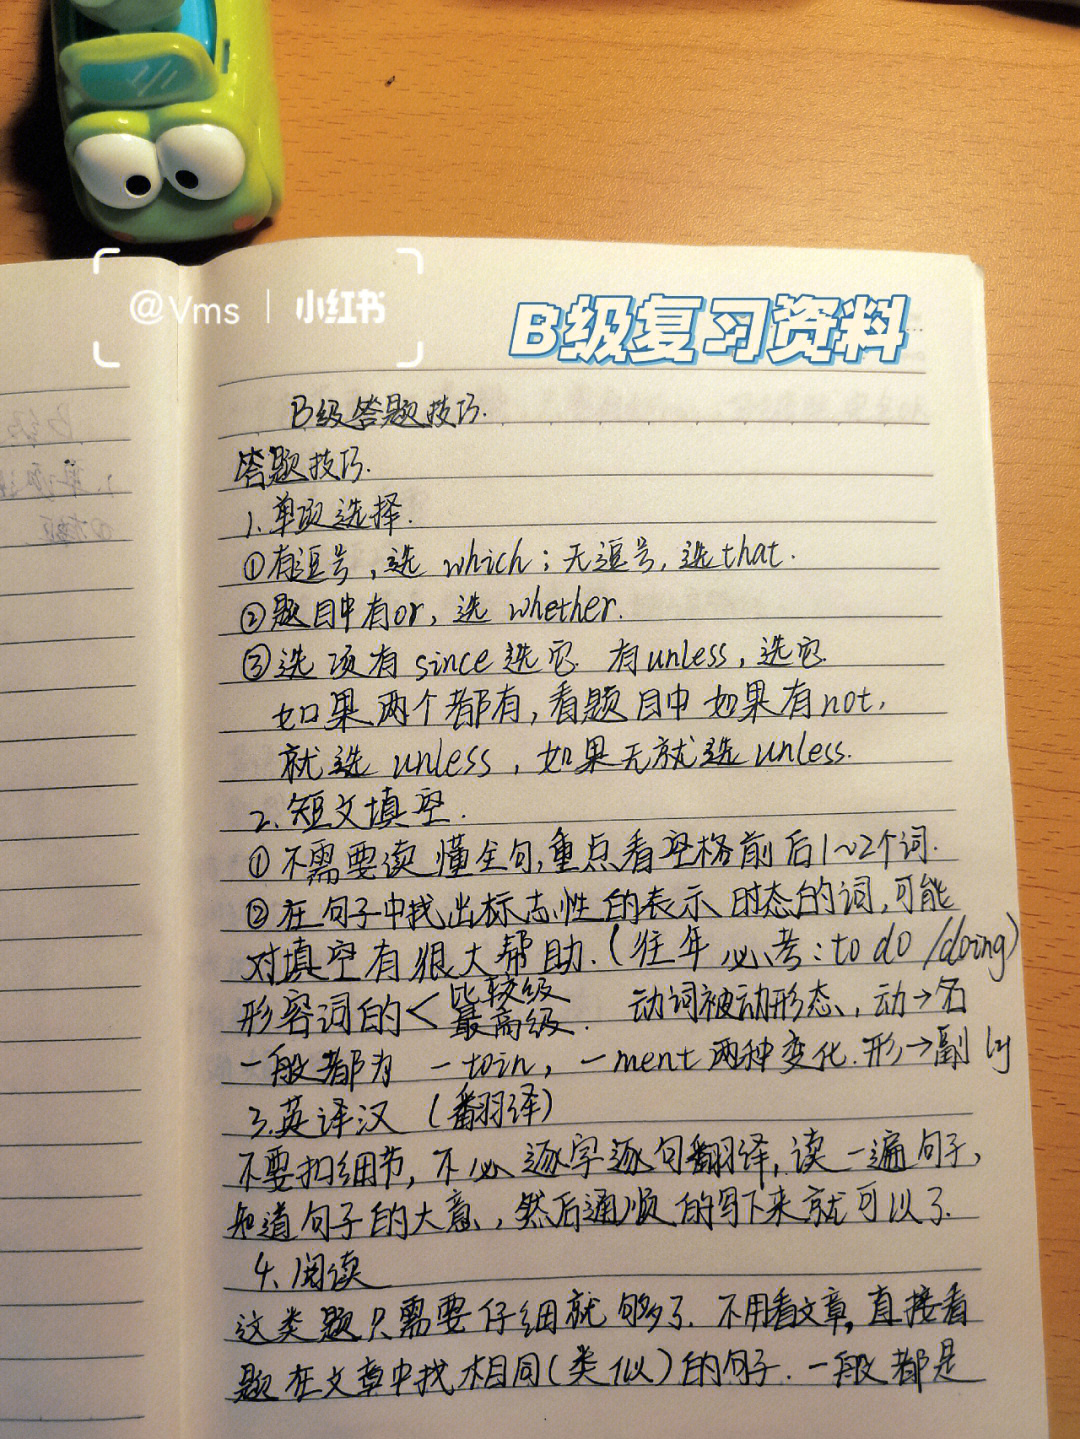 @Vms | 小红书
B级复习资料
B级答题技巧.
答题技巧.
1.单项选择.
①有逗号,选 which;无逗号,选that.
②题目中有or,选 whether.
③选项有 since 选它 有unless,选它.
如果两个都有,看题目中如果有not,
就选 unless,如果无就选unless.
2.短文填空.
①不需要读懂全句,重点看空格前后1~2个词.
②在句子中找出标志性的表示时态的词,可能
对填空有很大帮助.(往年必考:to do/doing)
形容词的<比较级 最高级. 动词被动形态,动→名
一般都为 -toin, -ment两种变化.形→副 ly
3.英译汉(翻译)
不要扣细节,不必逐字逐句翻译,读一遍句子,
知道句子的大意,然后通顺的写下来就可以了.
4.阅读
这类题只需要仔细就够了.不用看文章,直接看
题在文章中找相同(类似)的句子.一般都是